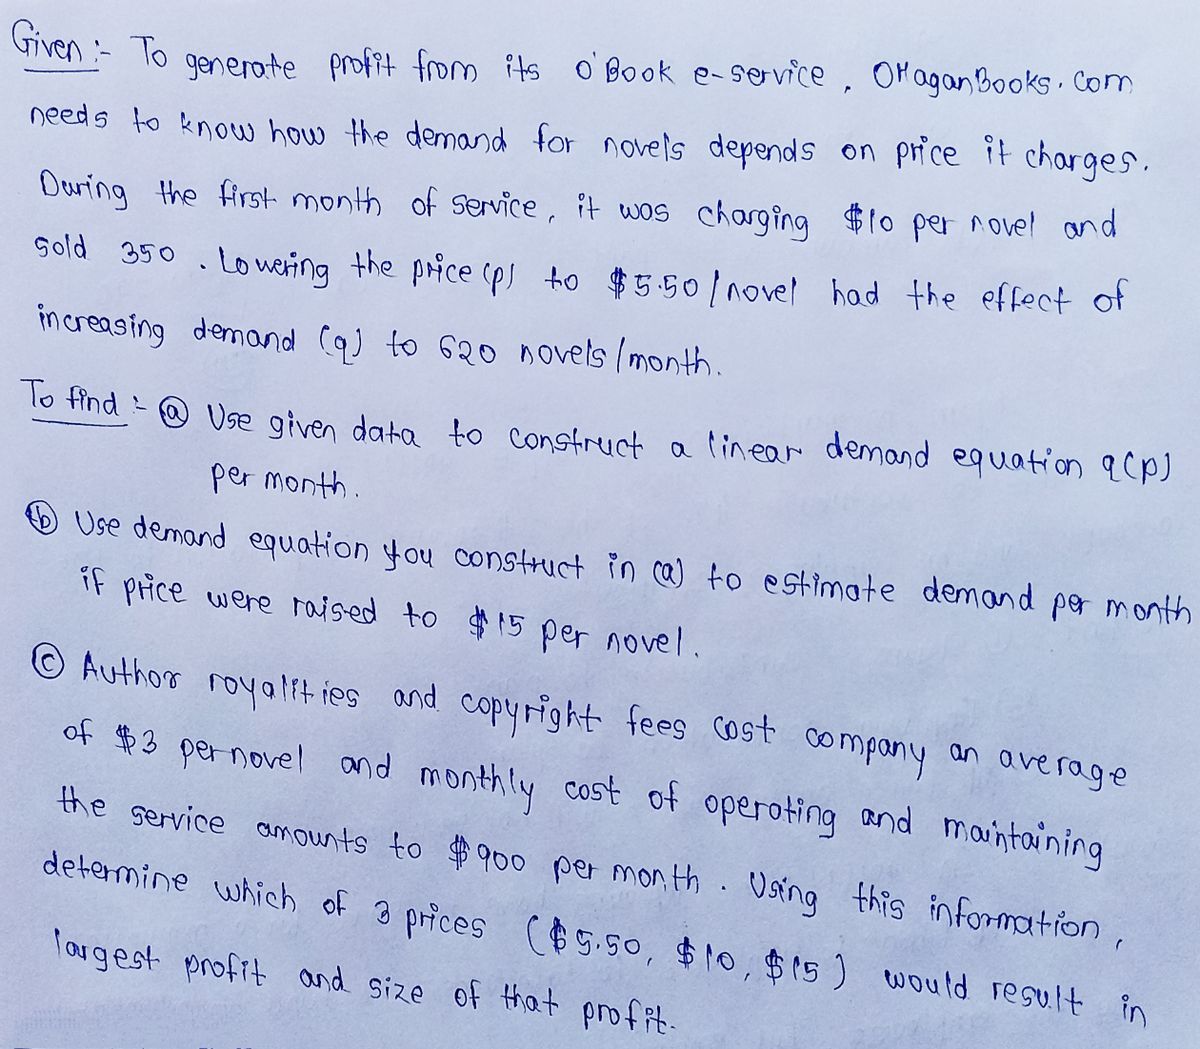 Given :- To generate profit from its O'Book e-service, OHaganBooks.com
needs to know how the demand for novels depends on price it charges.
During the first month of service, it was charging $10 per novel and
sold 350. Lowering the price (p) to $5.50 / novel had the effect of
increasing demand (q) to 620 novels / month.
To find :- ⓐ Use given data to construct a linear demand equation q(p)
per month.
ⓑ Use demand equation you construct in (a) to estimate demand per month
if price were raised to $15 per novel.
ⓒ Author royalities and copyright fees cost company an average
of $3 per novel and monthly cost of operating and maintaining
the service amounts to $900 per month. Using this information,
determine which of 3 prices ($5.50, $10, $15) would result in
largest profit and size of that profit.